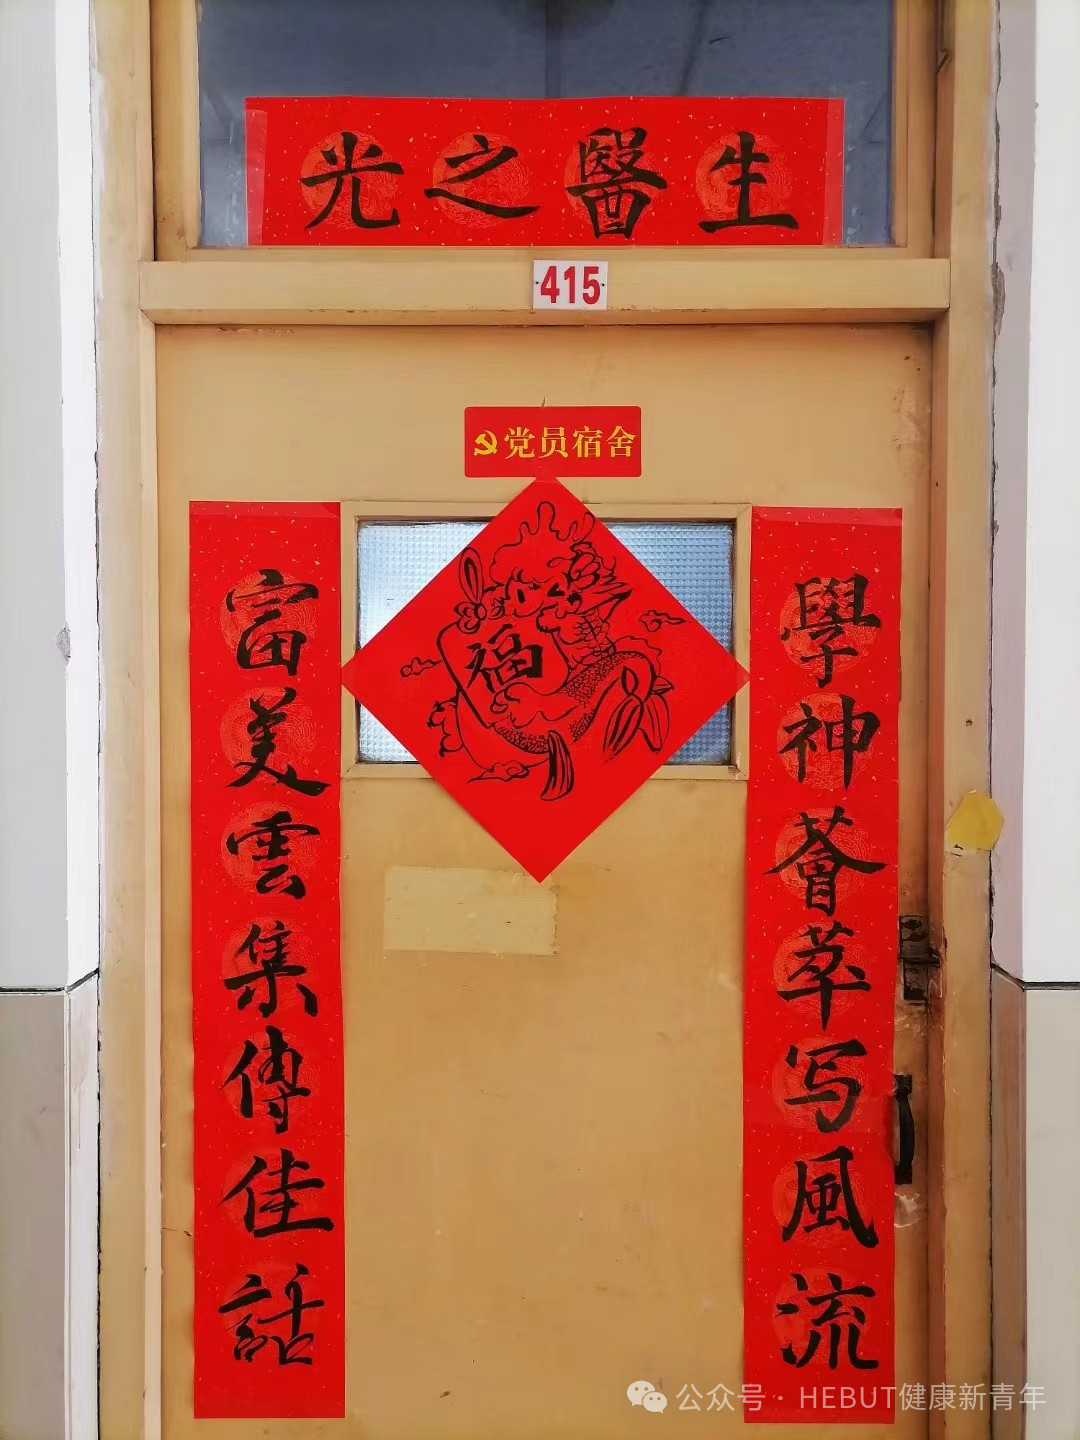 生醫之光
415
党员宿舍
福
學神薈萃写風流
富美雲集傳佳話
公众号 · HEBUT健康新青年